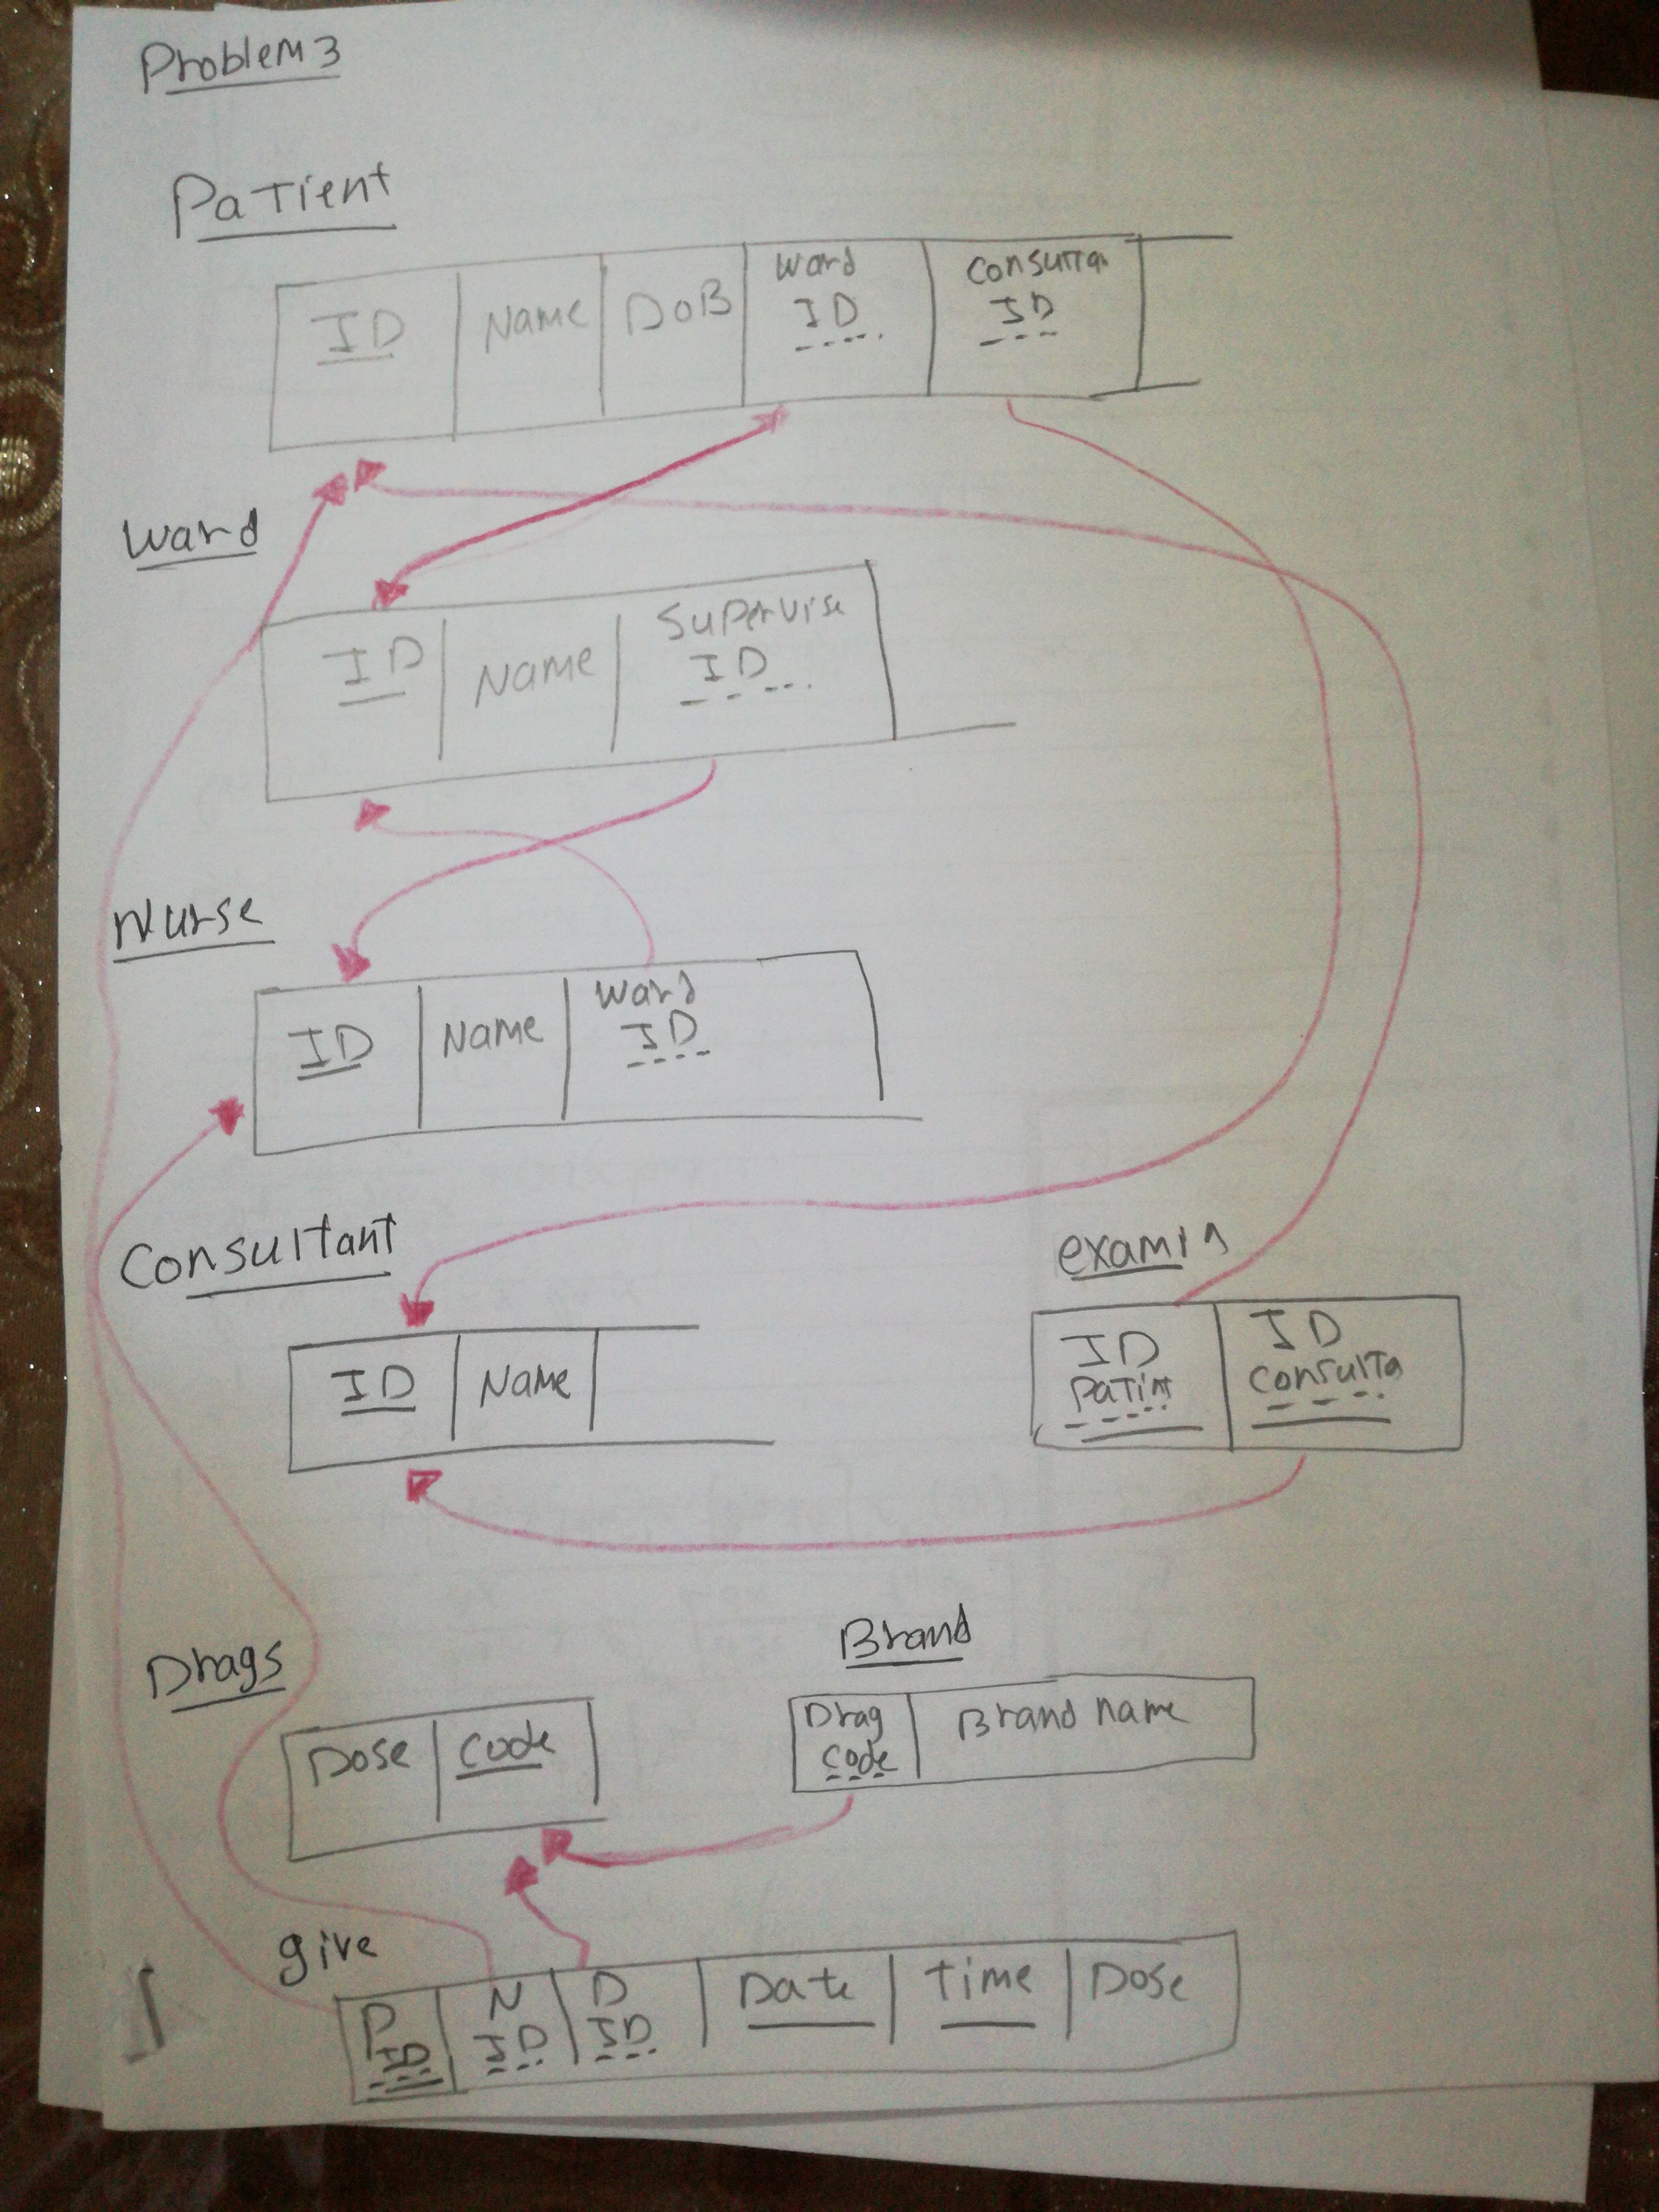 Problem 3
Patient
ID Name DoB Ward ID Consulta ID
Ward
ID Name Supervise ID
Nurse
ID Name Ward ID
Consultant
ID Name
examin
ID Patint ID consulta
Drags
Dose Code
Brand
Drag code Brand name
give
P ID N ID D ID Date Time Dose